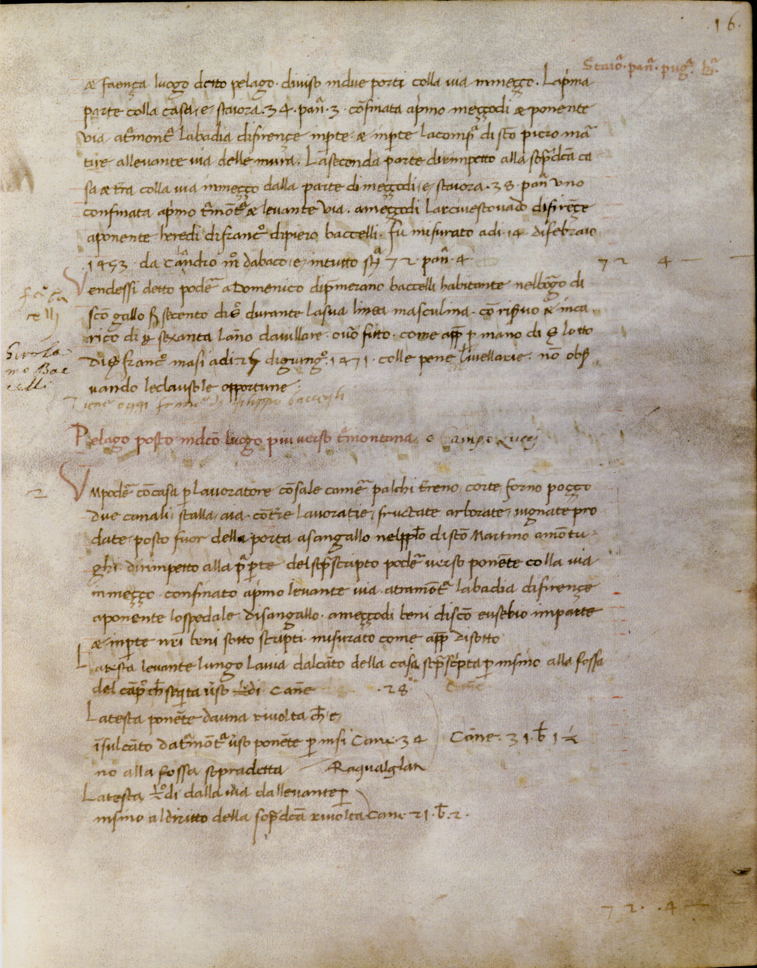 .16.
Staio͞. pan͞. pug͞. b͞.
& faença luogo detto pelago. diviso indue porti colla via inmeçço. Lapima
parte colla casa, e, staiora. 34. pan͞. 3. co͞finata apmo meççodi & ponente
via. at͞mont͞e Labadia difirençe inpte & inpte lacomp͞ di sto piero ma͞
tire allevante via delle mura. La seconda parte dirinpetto alla sop͞dc͞a ca
sa & tra colla via inmeçço dalla parte dimeççodi, e, staiora. 38. pan͞ uno
confinata apmo t͞mont͞e & levante via. ameççodi larcivescovado difirençe
aponente heredi difranc͞o dipiero baccelli. fu misurato adi. 14. di febraio
1453. da Cal͞andro m͞o dabaco, e, intutto st͞a 72. pan͞. 4.
72 4 —
Vendessi detto pode͞r a Domenico di baccelli habitante nelborgo di
sc͞o gallo secento durante lasua linea masculina. co͞ &
rico di sexanta lanno davillare. ovo͞ fitto. come app͞ p mano di S lotto
di S franc͞o masi adi giungo͞. 1471. colle pene livellarie. no͞ obs͞
vando leclausole opportune.
Tiene oggi franc͞o di filippo baccelli
Girola
mo Bac
celli
Pelago posto indc͞o luogo piu verso t͞montana. o Campo Lucci
2
Un pode͞r co͞ casa p lavoratore co͞ sale came͞r palchi t͞reno corte forno poçço
due canali, stalla, aia. co͞ t͞re lavoratie, fructate arborate, vignate pro
date, posto fuor della porta asangallo nel pp͞lo disc͞o Martino amo͞tu
ghi dirinpetto alla p͞a p͞te delsop͞scripto pode͞r verso pone͞te colla via
inmeçço confinato apmo levante via. atramont͞a labadia difirençe
aponente lospedale disangallo. ameççodi beni disco͞ eusebio inparte
& inpte nr͞i beni sotto scripti. misurato come app͞ disotto
Latesta levante lungo lavia dalcanto della casa sop͞sc͞pta p insino alla fossa
del di Can͞e .28
Latesta pone͞te da una rivolta ch͞ e,
insulcato dat͞mont͞a v͞so ponente p insi Cane. 34 Cane. 31. b͞ 1½
no alla fossa sopradetta Raqualglat
Latesta di dalla via dallevante p
insino al diritto della sop͞dc͞a rivolta Cane 21. b͞. 2.
72. .4 —